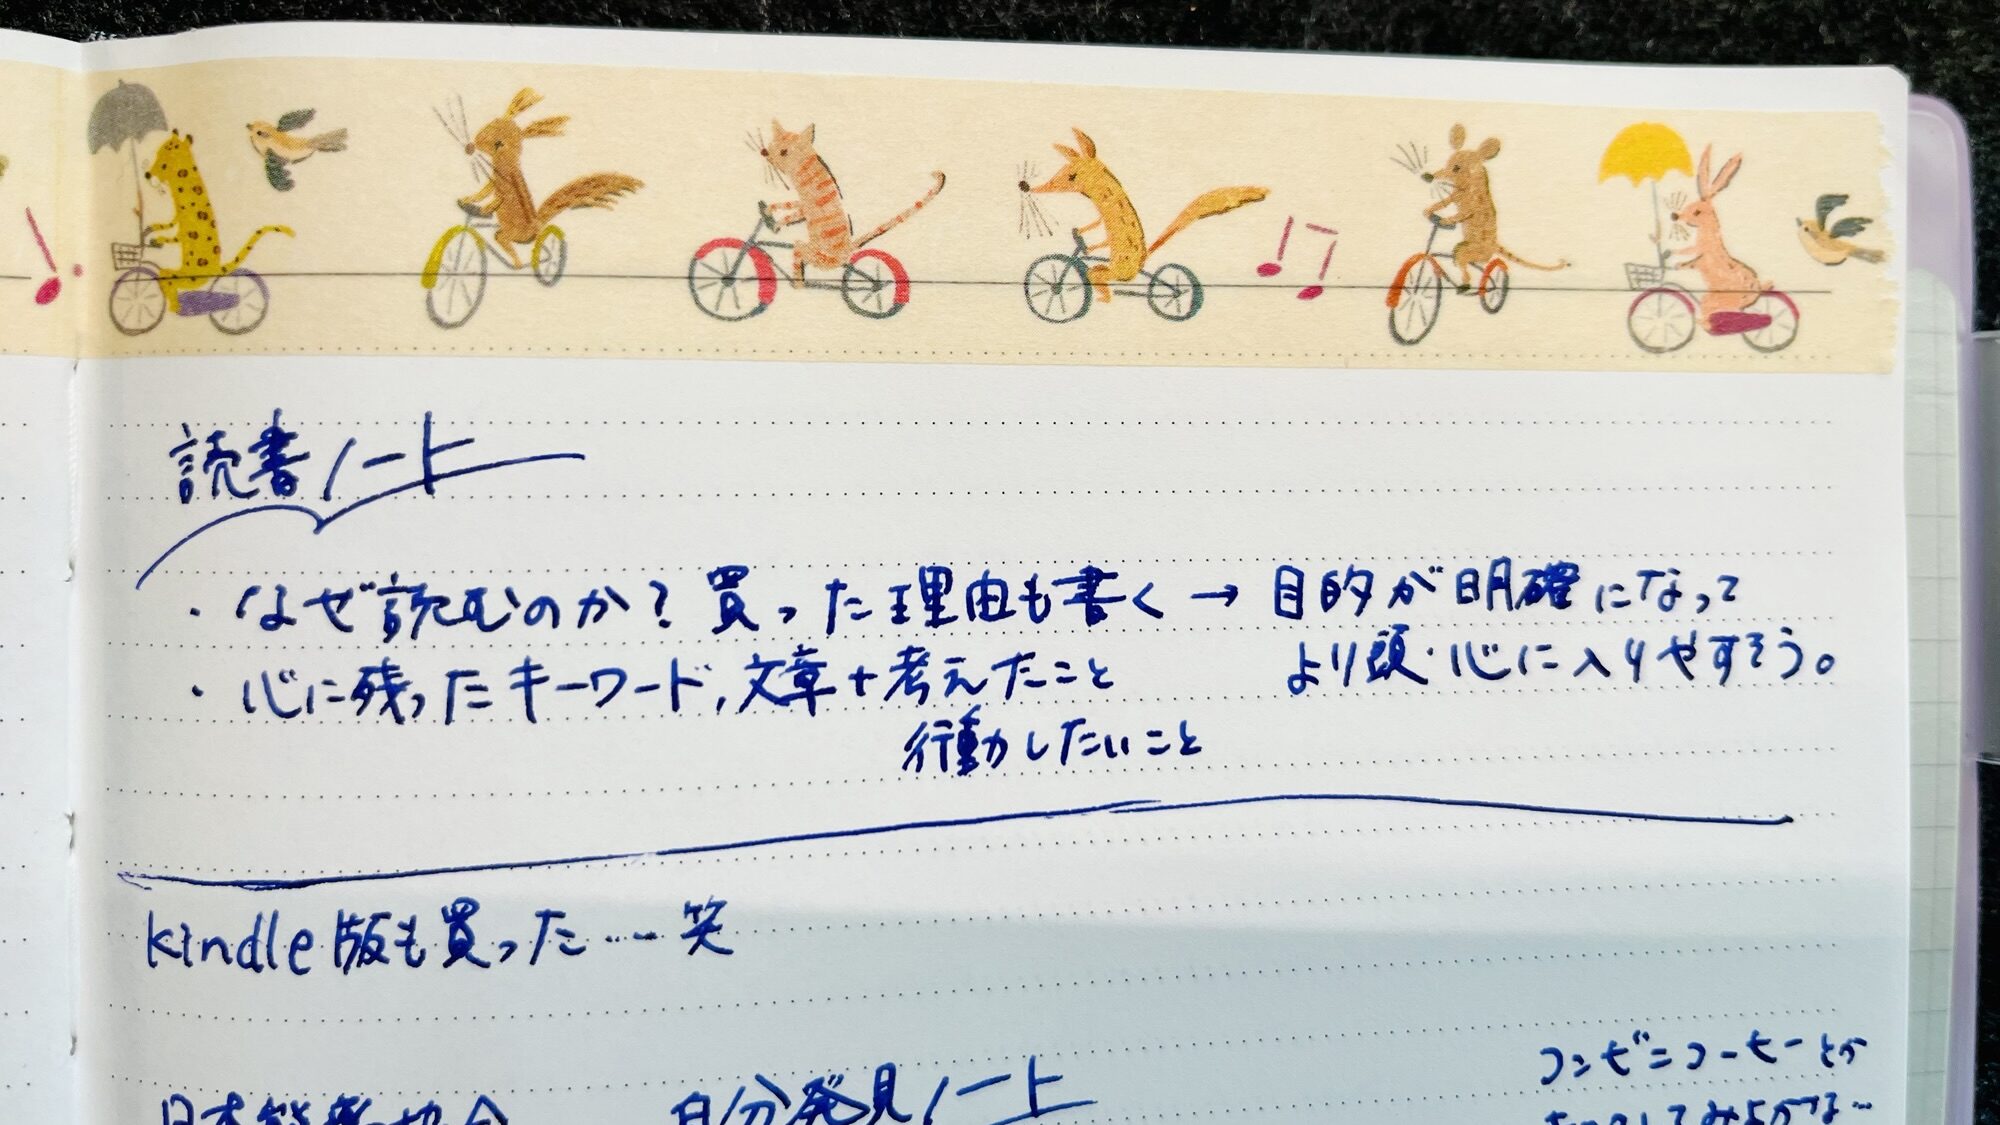 読書ノート
・なぜ読むのか?買った理由も書く → 目的が明確になって
より頭・心に入りやすそう。
・心に残ったキーワード,文章+考えたこと
行動したいこと
kindle版も買った…笑
コンビニコーヒーとか
日本能率協会 自分発見ノート